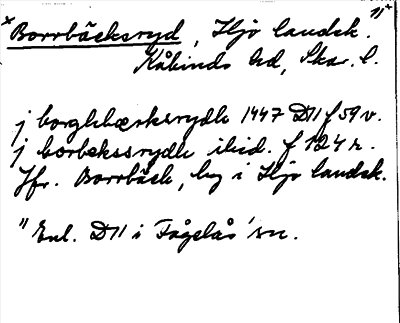 × Borrbäcksryd, Hjo landsk. 1)+
Kåkinds hd, Skar. l.
j borghbærksrydh 1447 D11 f 59 v.
j borbekssrydh ibid. f 124 r.
Jfr. Borrbäck, by i Hjo landsk.
1) Enl. D11 i Fågelås' sn.